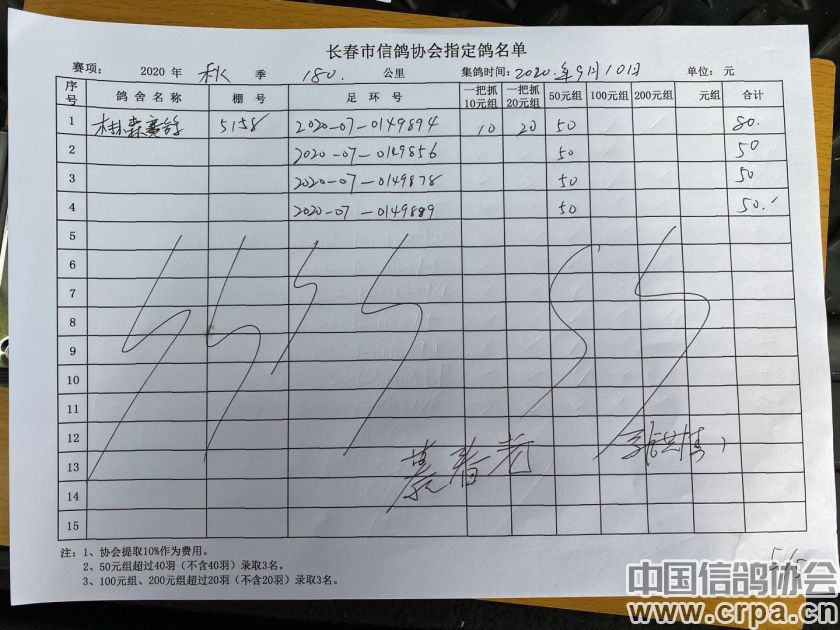 长春市信鸽协会指定鸽名单
赛项： 2020 年 秋 季 180. 公里 集鸽时间：2020.年9月10日 单位：元
序号 鸽舍名称 棚号 足环号 一把抓10元组 一把抓20元组 50元组 100元组 200元组 元组 合计
1 林森赛鸽 5158 2020-07-0149894 10 20 50 80.
2 2020-07-0149856 50 50
3 2020-07-0149878 50 50
4 2020-07-0149889 50 50.
5
6
7
8
9
10
11
12
13
14
15
注：1、协会提取10%作为费用。
2、50元组超过40羽（不含40羽）录取3名。
3、100元组、200元组超过20羽（不含20羽）录取3名。
5/5
中国信鸽协会
www.crpa.cn